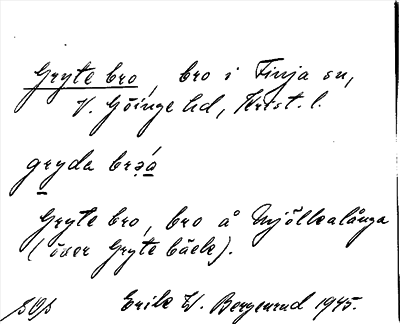 Gryte bro, bro i Finja sn,
V. Göinge hd, Krist. l.
gryda brǝá
Gryte bro, bro å Mjölkalånga
(över Gryte bäck).
Erik W. Bergenrud 1945.